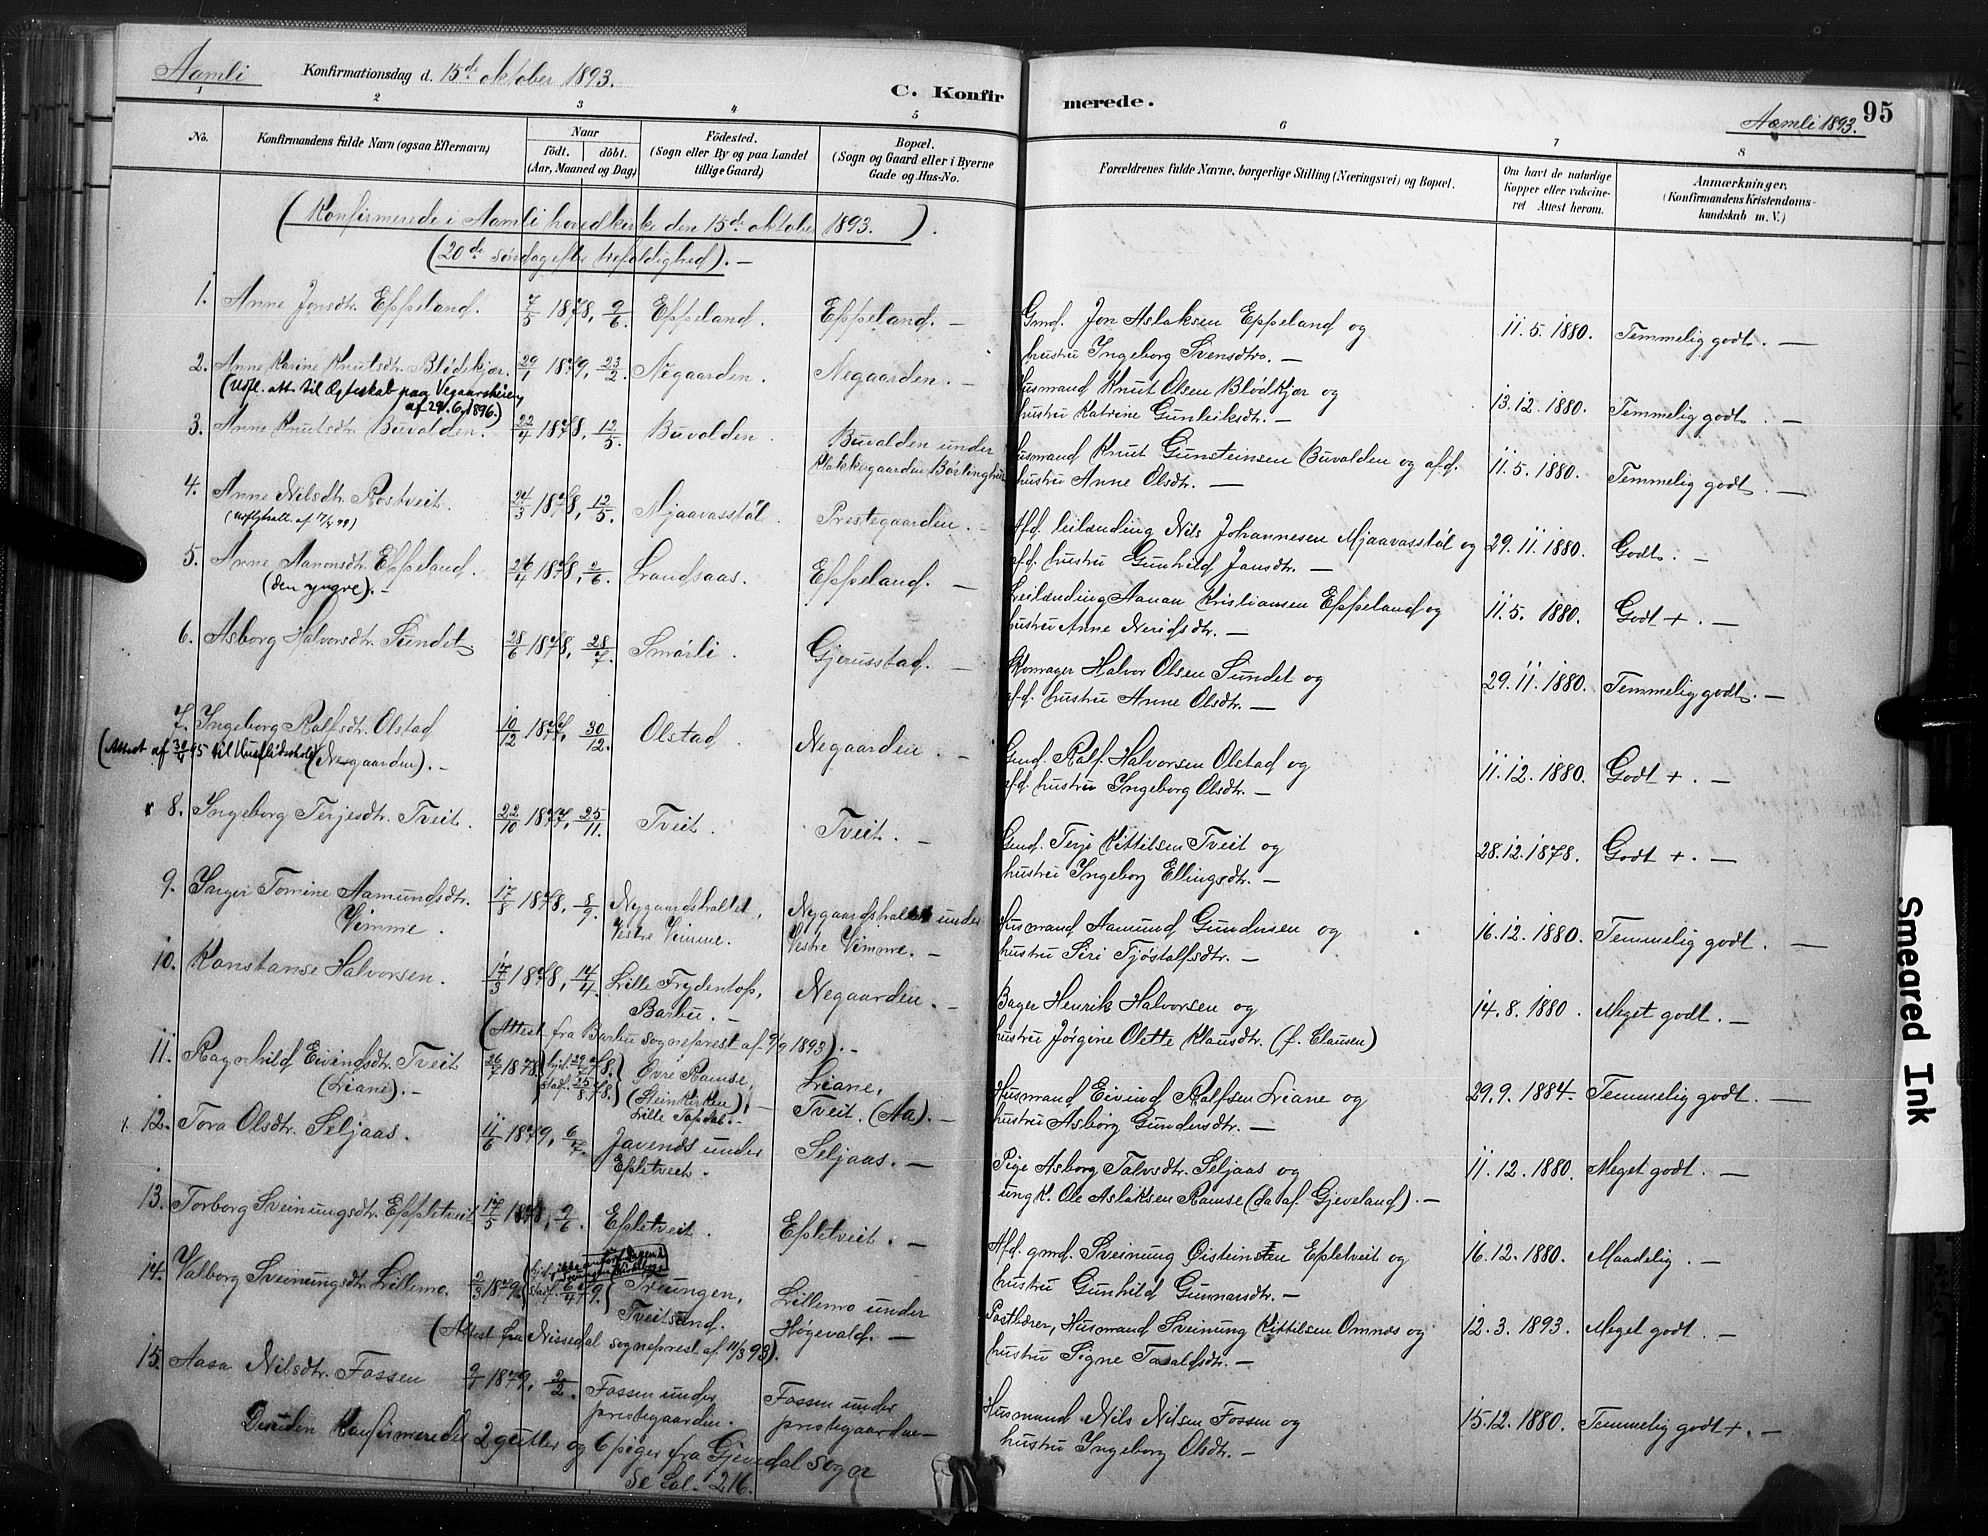 Aamli Konfirmationsdag d. 15de oktober 1893.
C. Konfirmerede. 95
Aamli 1893.
1 2 3 4 5 6 7 8
No. Konfirmandens fulde Navn (ogsaa Efternavn) Naar født. døbt. (Aar, Maaned og Dag) Fødested. (Sogn eller By og paa Landet tillige Gaard) Bopæl. (Sogn og Gaard eller i Byerne Gade og Hus-No. Forældrenes fulde Navne, borgerlige Stilling (Næringsvei) og Bopæl. Om havt de naturlige Kopper eller vakcineret Attest herom. Anmærkninger, (Konfirmandens Kristendomskundskab m. V.)
(Konfirmerede i Aamli hovedkirke den 15de oktober 1893.)
(20de søndag efter trefoldighed). —
1. Anne Jonsdtr. Eppeland. 7/5 1878, 9/6. Eppeland. Eppeland. — Gmd. Jon Aslaksen Eppeland og 11.5.1880. Temmelig godt. —
hustru Ingeborg Svensdtr. —
2. Anne Karine Knutsdtr. Blødekjær. 29/1 1879, 23/2. Negaarden. Negaarden. — Husmand Knut Olsen Blødkjær og 13.12.1880. Temmelig godt. —
(Udfl. att. til Ægteskab paa Vegaarsheien af 29.6.1896.) hustru Katrine Gunleiksdtr. —
3. Anne Knutsdtr. Buvolden. 22/4 1878, 12/5. Buvolden. Buvolden under Husmand Knut Gunsteinsen Buvolden og afd. 11.5.1880. Temmelig godt. —
Klokkergaarden hustru Anne Olsdtr. —
4. Anne Nilsdtr. Rostveit. 24/3 1878, 12/5. Mjaavasstøl. Prestegaarden. — Afd. leilænding Nils Johannesen Mjaavasstøl og 29.11.1880. Godt. —
afd. hustru Gunhild Jansdtr. —
5. Anne Aanonsdtr. Eppeland. 26/4 1878, 2/6. Landsaas. Eppeland. — Leilænding Aanan Kristiansen Eppeland og 11.5.1880. Godt +. —
(den yngre). — hustru Anne Neridsdtr. —
6. Asborg Halvorsdtr. Sundet 28/6 1878, 28/7. Smørli. Gjerusstad. — Skomager Halvor Olsen Sundet og 29.11.1880. Temmelig godt. —
afd. hustru Anne Olsdtr. —
7. Ingeborg Ralfsdtr. Olstad 10/12 1877, 30/12. Olstad. Negaarden. — Gmd. Ralf Halvorsen Olstad og 11.12.1880. Godt +. —
(Attest af 30/4 95 til Husflidsskole) (Nesgaarden). — afd. hustru Ingeborg Olsdtr. —
x 8. Ingeborg Terjesdtr. Tveit. 22/10 1877, 25/11. Tveit. Tveit. — Gmd. Terje Kittilsen Tveit og 28.12.1878. Godt +. —
hustru Ingeborg Ellingsdtr. —
9. Inger Tomine Aamundsdtr. 17/8 1878, 8/9. Nygaardshaltet, Nygaardshaltet under Husmand Aamund Gundersen og 16.12.1880. Temmelig godt. —
Vimme. Vestre Vimme. Vestre Vimme. — hustru Siri Tjøstalfsdtr. —
10. Konstanse Halvorsen. 17/3 1878, 14/4. Lille Frydentop, Negaarden. — Bager Henrik Halvorsen og 14.8.1880. Meget godt. —
Barbu. — hustru Jørgine Olette Klausdtr. (f. Clausen)
(Attest fra Barbu sogneprest af 9/9 1893). —
11. Ragnhild Eivindsdtr. Tveit 26/7 1878. hjd. 29/7 78. stadf. 25/8 78. Øvre Ramse, Liane, Husmand Eivind Ralfsen Liane og 29.9.1884. Temmelig godt. —
(Liane). — (Steinkirken), Lille Topdal. — Tveit. (Aa). — hustru Asborg Gundersdtr. —
12. Tora Olsdtr. Seljaas. 11/6 1879, 6/7. Javends under Seljaas. — Pige Asborg Talvsdtr. Seljaas og 11.12.1880. Meget godt. —
Epletveit. ungk. Ole Aslaksen Ramse (da af Gjeveland). —
13. Torborg Sveinungsdtr. Eppletveit 17/5 1878, 9/6. Epletveit. Epletveit. — Afd. gmd. Sveinung Øisteinsen Epletveit og 16.12.1880. Maadelig. —
hustru Gunhild Gunnarsdtr. —
14. Valborg Sveinungsdtr. Lillemo. 2/3 1879. Treungen, Lillemo under Postbærer, Husmand Sveinung Kittilsen Omnæs og 12.3.1893. Meget godt. —
Tveitsund. Høgevold. — hustru Signe Tovaldsdtr. —
(Attest fra Nissedal sogneprest af 11/3 93).
15. Aasa Nilsdtr. Fossen 9/1 1879, 2/2. Fossen under Fossen under Husmand Nils Nilsen Fossen og 15.12.1880. Temmelig godt +. —
prestegaarden. prestegaarden — hustru Ingeborg Olsdtr. —
Desuden Konfirmeredes 2 gutter og 6 piger fra Gjøvdal sogn
Se fol. 216.
Smeared Ink